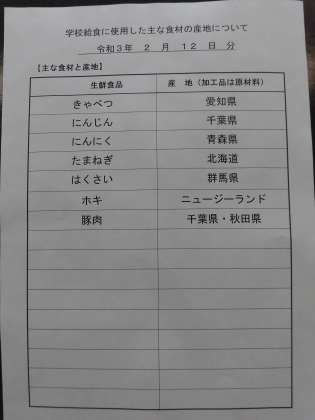 学校給食に使用した主な食材の産地について
令和3年 2 月 12 日 分
【主な食材と産地】
生鮮食品 産 地（加工品は原材料）
きゃべつ 愛知県
にんじん 千葉県
にんにく 青森県
たまねぎ 北海道
はくさい 群馬県
ホキ ニュージーランド
豚肉 千葉県・秋田県